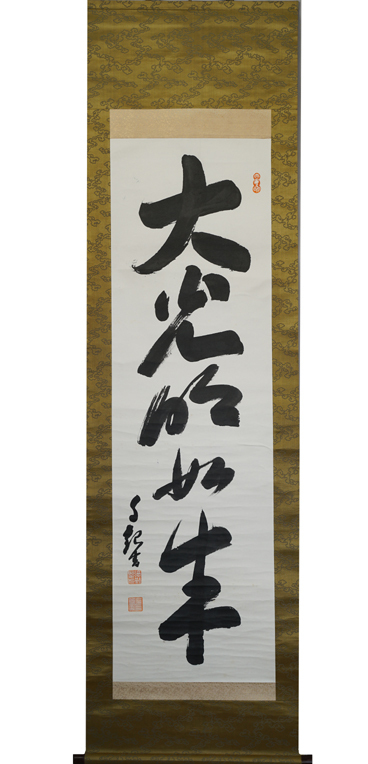 大光明如来